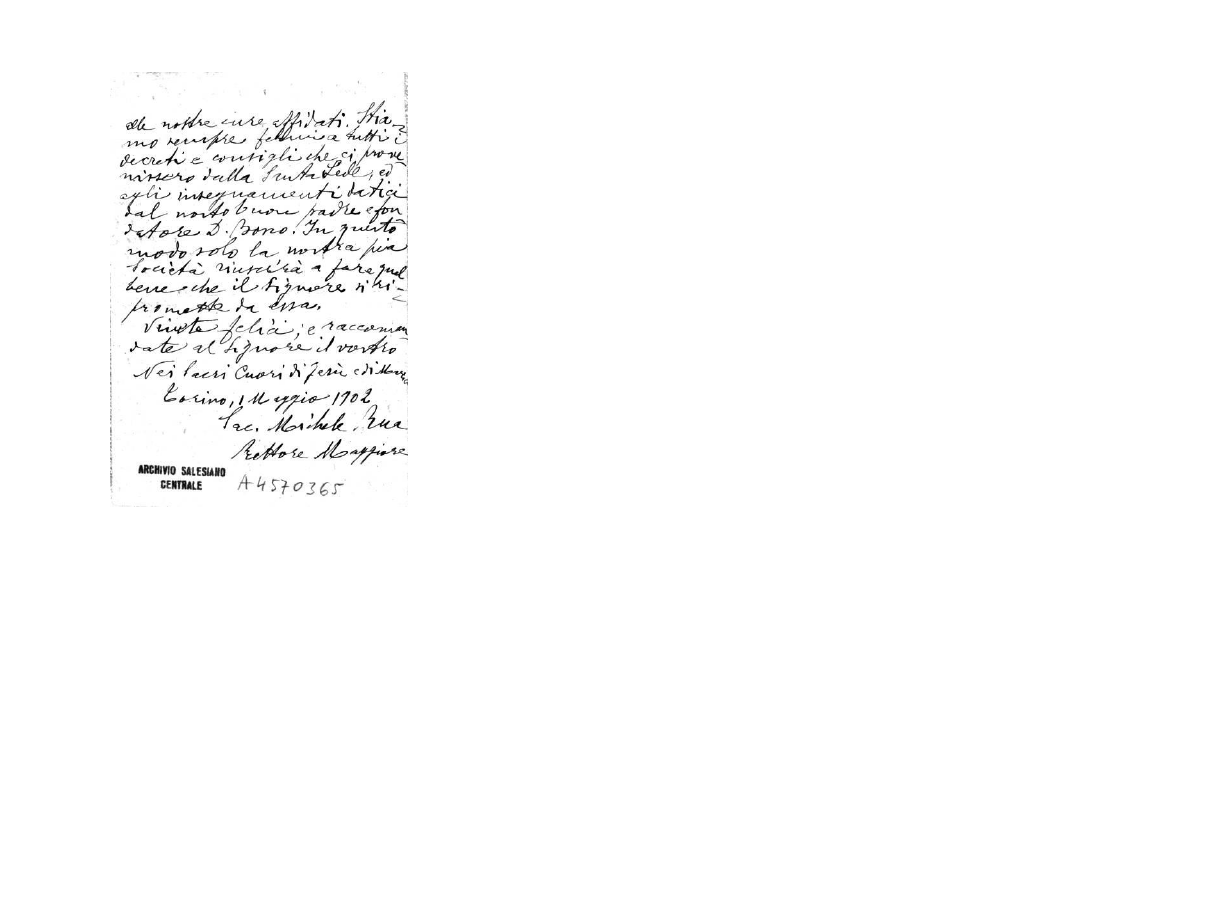 alle nostre cure affidati. Stia-
mo sempre fedeli a tutti i
decreti e consigli che ci prove-
nissero dalla Santa Sede, ed
agli insegnamenti datici
dal nostro buon padre e fon
datore D. Bosco. In questo
modo solo la nostra pia
Società riuscirà a fare quel
bene che il Signore si ri-
promette da essa.
Vivete felici, e raccoman
date al Signore il vostro
Nei Sacri Cuori di Gesù e di Maria
Torino, 1 Maggio 1902
Sac. Michele Rua
Rettore Maggiore
ARCHIVIO SALESIANO
CENTRALE
A4570365